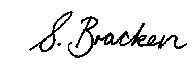 S. Bracken